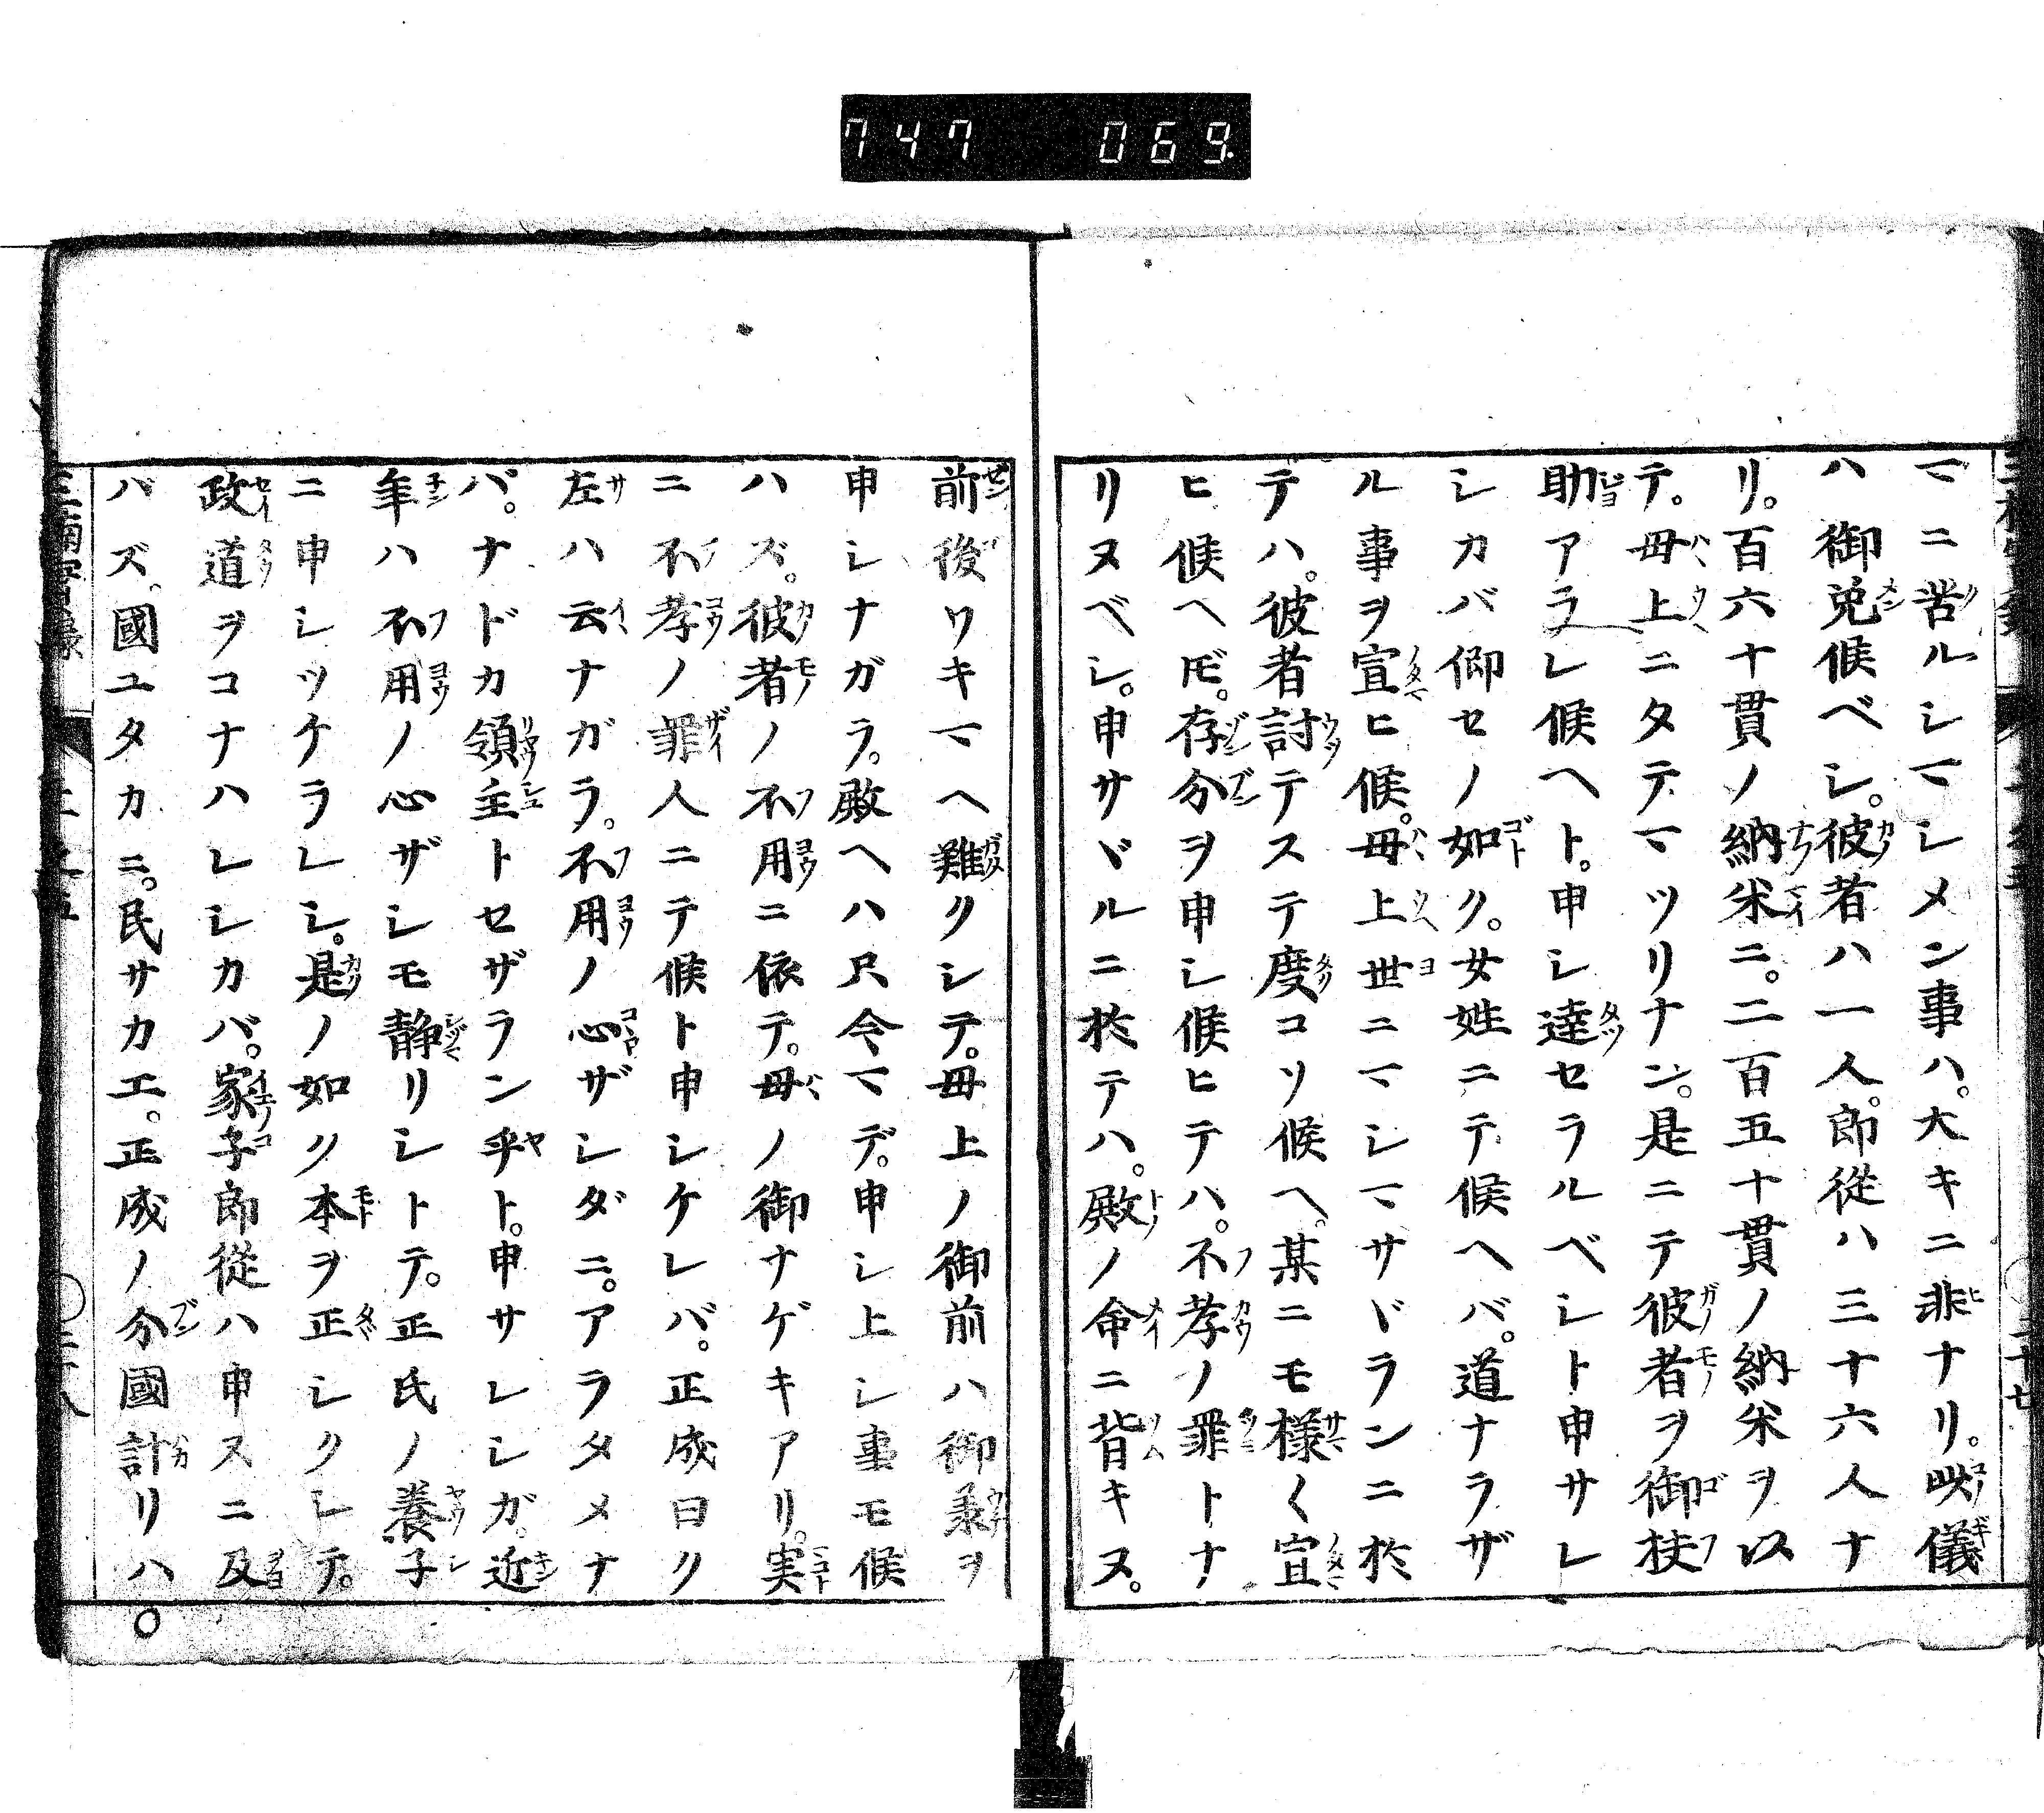 747 069.
マニ苦ルシマシメン事ハ。大キニ非ナリ。此儀
ハ御免候ベシ。彼者ハ一人。郎従ハ三十六人ナ
リ。百六十貫ノ納米ニ。二百五十貫ノ納米ヲ以
テ。母上ニタテマツリナン。是ニテ彼者ヲ御扶
助アラレ候ヘト。申シ達セラルベシト申サレ
シカバ仰セノ如ク。女姓ニテ候ヘバ。道ナラザ
ル事ヲ宣ヒ候。母上世ニマシマサヾランニ於
テハ。彼者討テステ度コソ候ヘ。某ニモ様〱宣
ヒ候ヘ𪜈。存分ヲ申シ候ヒテハ。不孝ノ罪トナ
リヌベシ。申サヾルニ於テハ。殿ノ命ニ背キヌ。
前後ワキマヘ難クシテ。母上ノ御前ハ御承ヲ
申シナガラ。殿ヘハ只今マデ。申シ上シ事モ候
ハズ。彼者ノ不用ニ依テ。母ノ御ナゲキアリ。実
ニ不孝ノ罪人ニテ候ト申シケレバ。正成曰ク
左ハ云ナガラ。不用ノ心ザシダニ。アラタメナ
バ。ナドカ領主トセザラン乎ト。申サレシガ。近
年ハ不用ノ心ザシモ静リシトテ。正氏ノ養子
ニ申シツケラレシ。是ノ如ク本ヲ正シクシテ。
政道ヲコナハレシカバ。家子郎従ハ申スニ及
バズ。國ユタカニ。民サカエ。正成ノ分國計リハ。